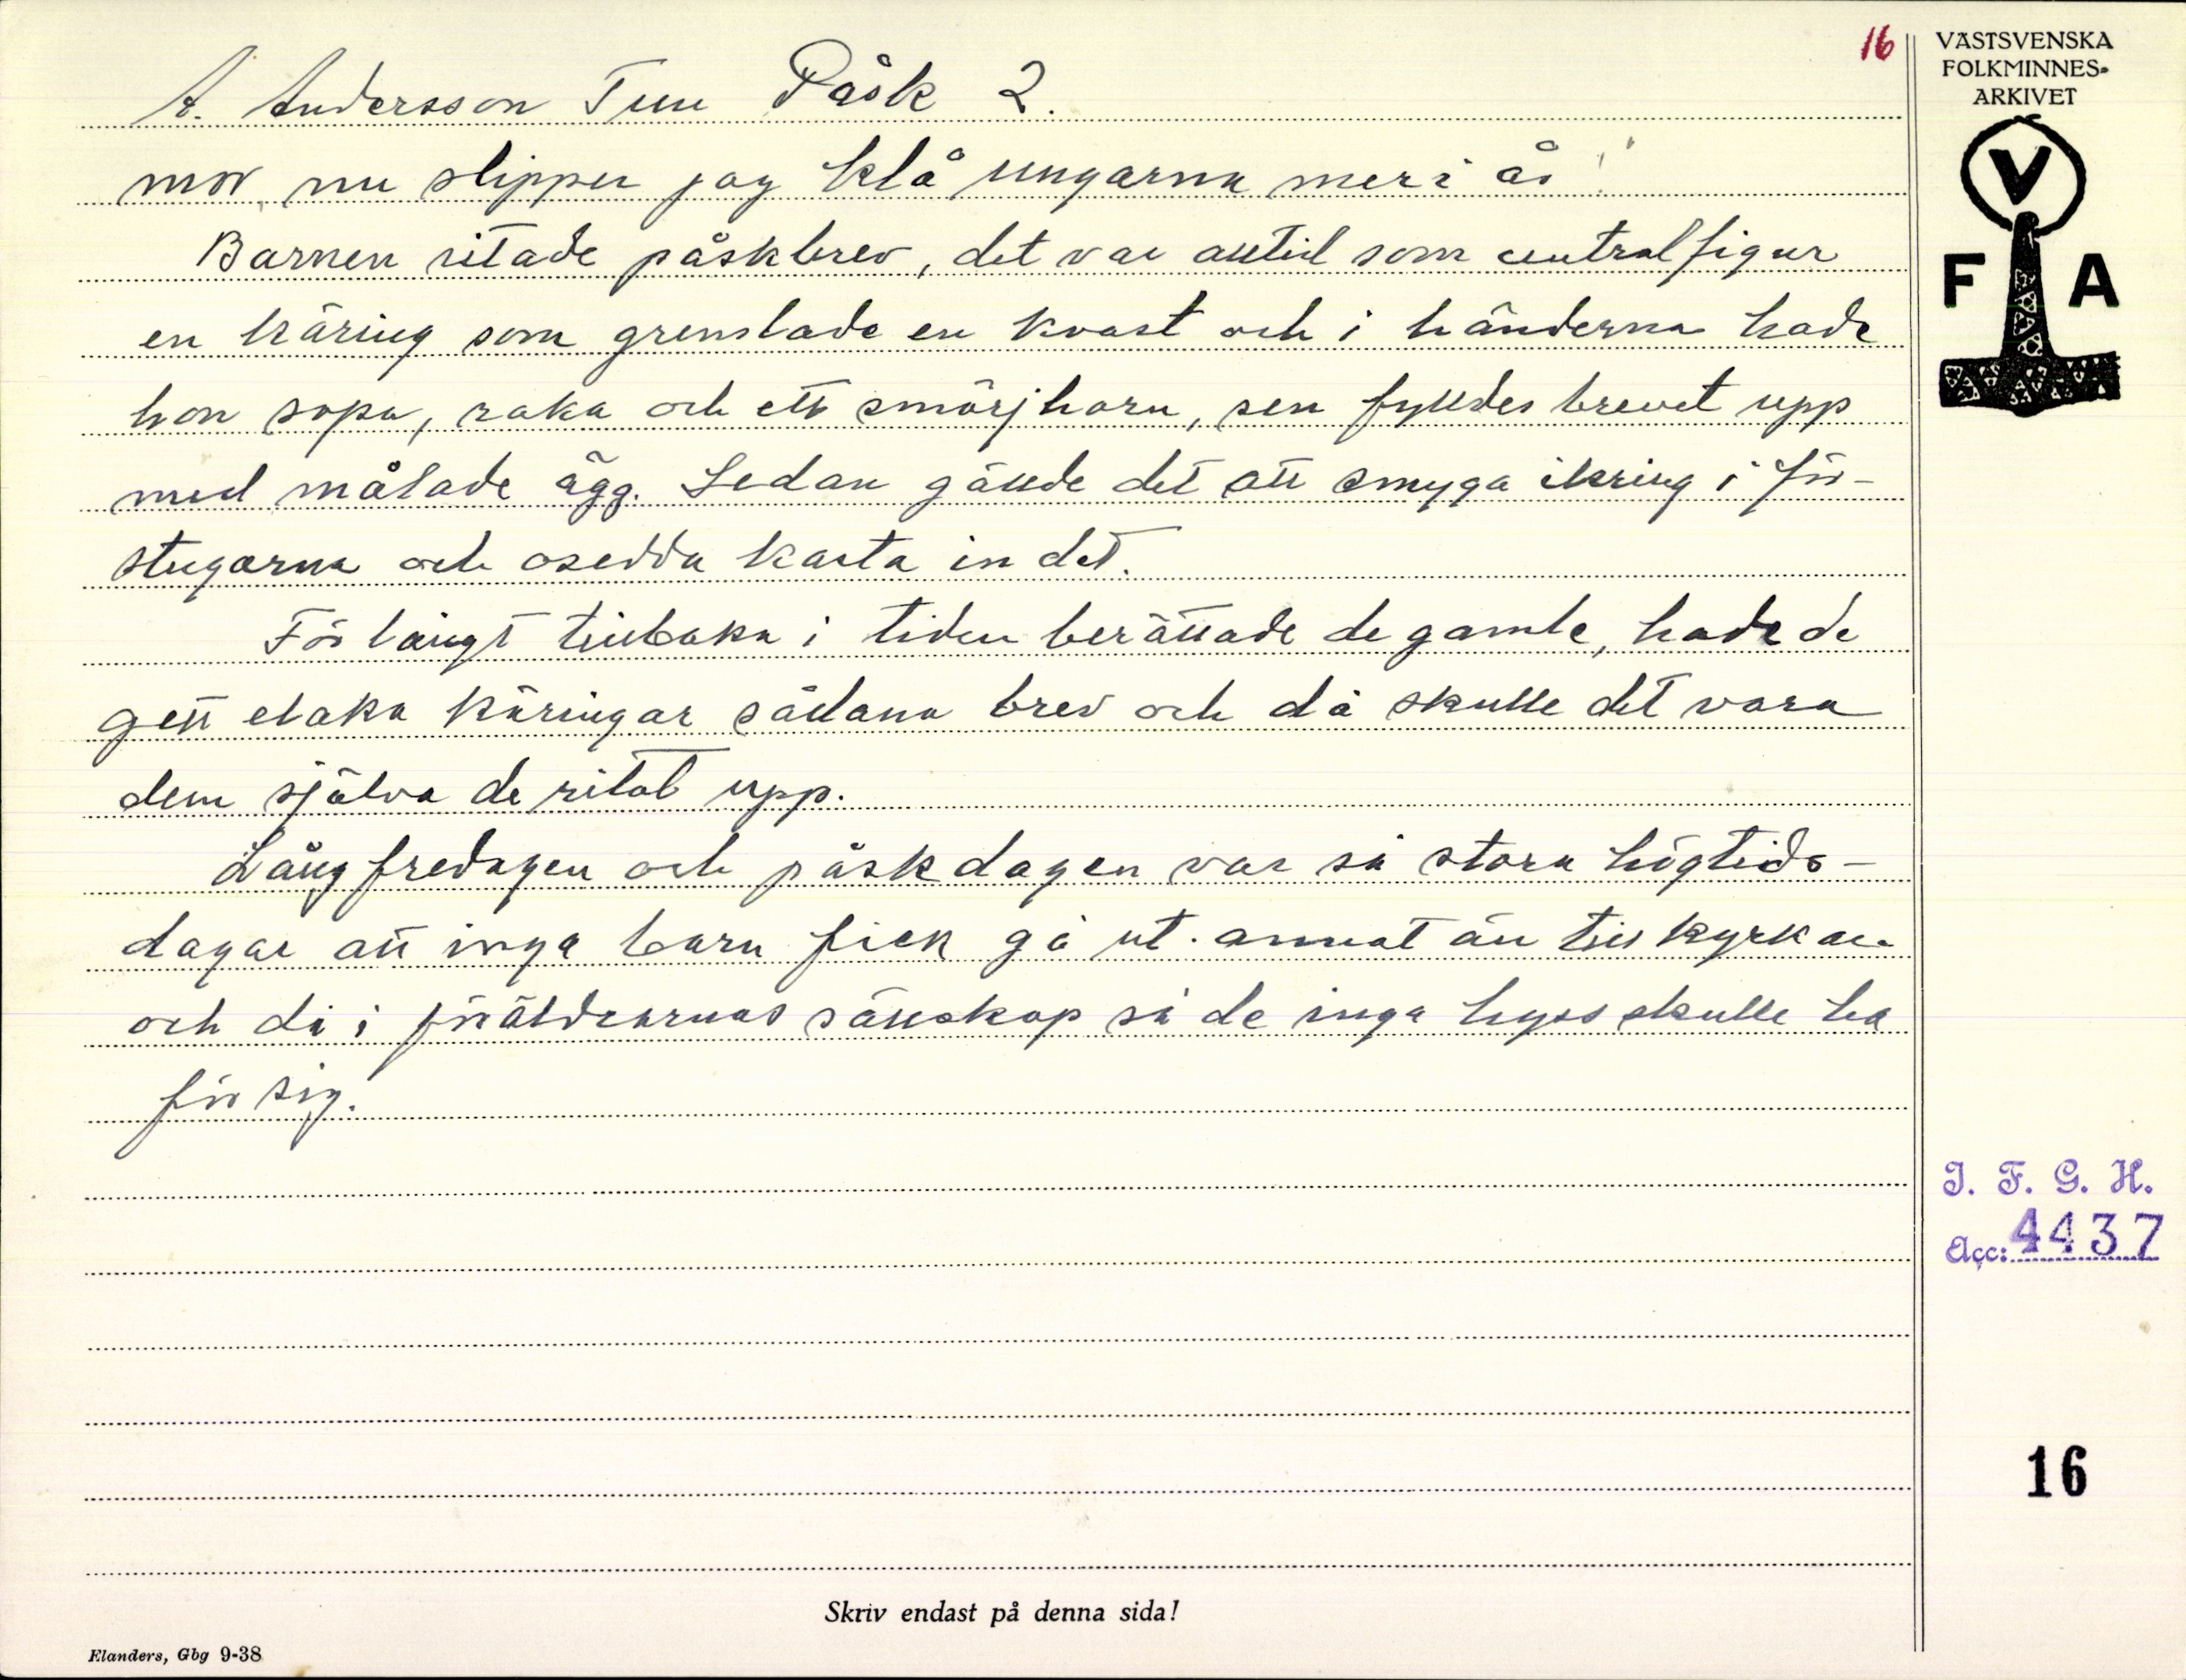 16
VÄSTSVENSKA
FOLKMINNES-
ARKIVET
V
F A
A. Andersson Tun Påsk 2.
mor, nu slipper jag klå ungarna mer i år!"
Barnen ritade påskbrev, det var alltid som centralfigur
en käring som grenslade en kvast och i händerna hade
hon sopa, raka och ett smörjhorn, sen fylldes brevet upp
med målade ägg. Sedan gällde det att smyga ikring i för-
stugorna och osedda kasta in det.
För långt tillbaka i tiden berättade de gamle, hade de
gett elaka käringar sådana brev och då skulle det vara
dem själva de ritat upp.
Långfredagen och påskdagen var så stora högtids-
dagar att inga barn fick gå ut. annat än till kyrkan
och då i föräldrarnas sällskap så de inga hyss skulle ha
för sig.
I. F. G. H.
Acc: 4437
16
Skriv endast på denna sida!
Elanders, Gbg 9-38